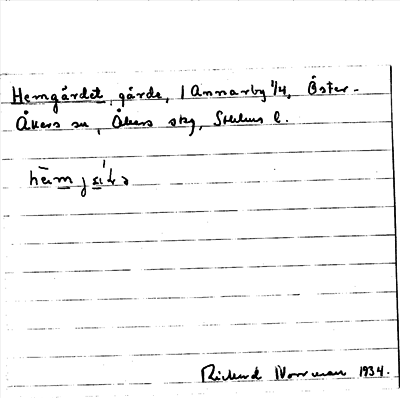 Hemgårdet, gärde, 1 Annarby 1/4, Öster-
Åkers sn, Åkers skg, Sthlms l.
Rickard Norrman 1934.